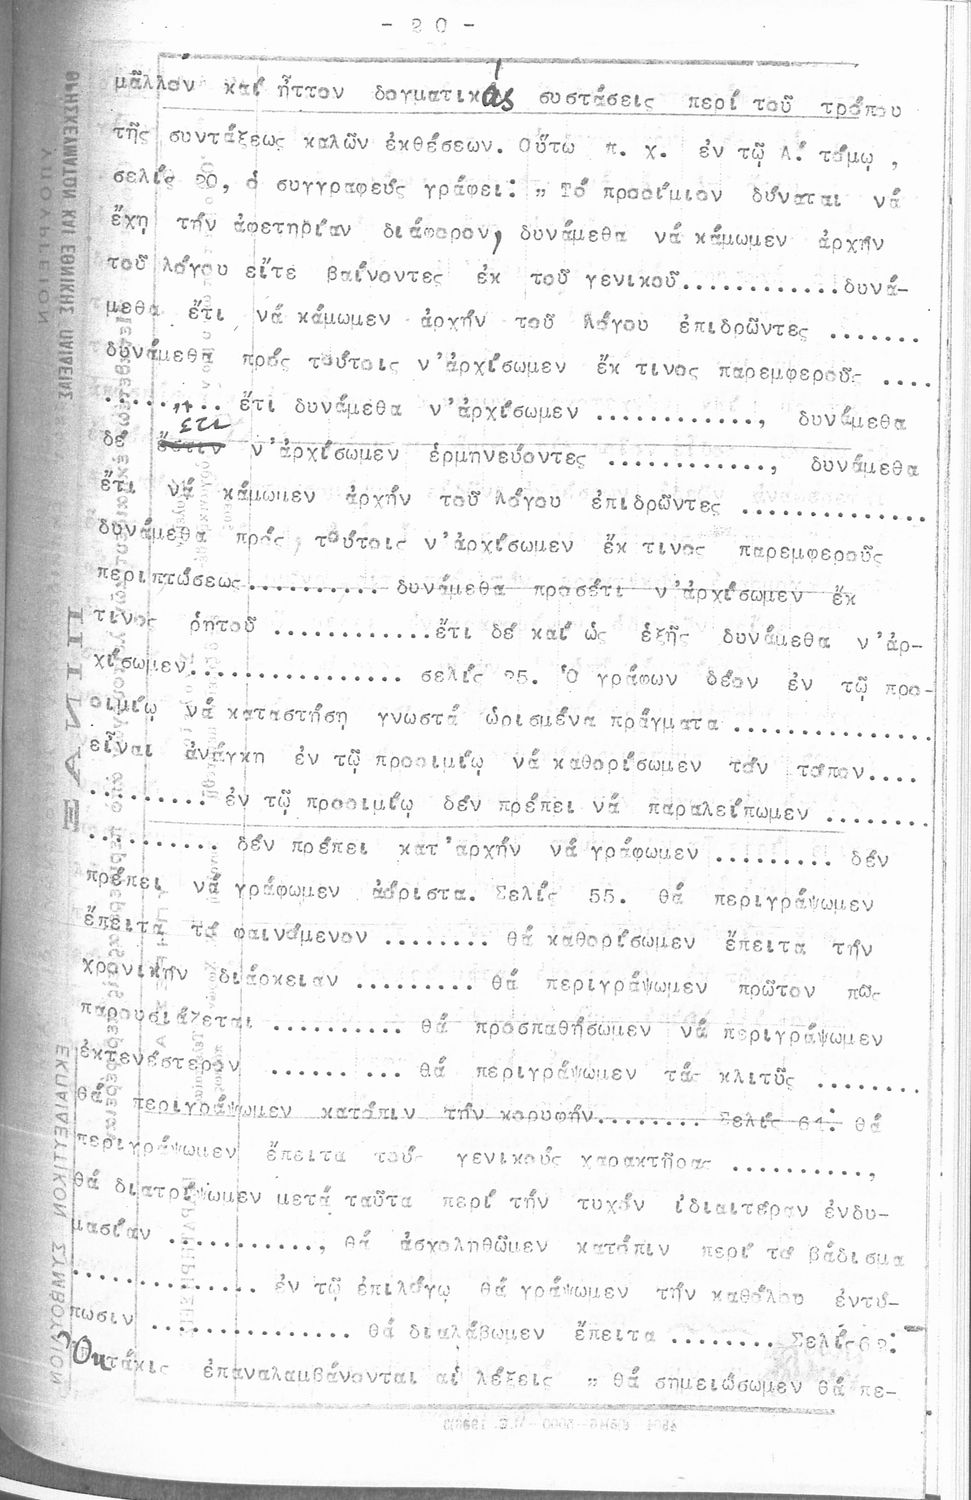 - 20 -
μᾶλλον καί ἧττον δογματικάς συστάσεις περί τοῦ τρόπου
τῆς συντάξεως καλῶν ἐκθέσεων. Οὕτω π. χ. ἐν τῷ Α΄ τόμῳ ,
σελίς 20, ὁ συγγραφεύς γράφει: „ Τό προοίμιον δύναται νά
ἔχῃ τήν ἀφετηρίαν διάφορον, δυνάμεθα νά κάμωμεν ἀρχήν
τοῦ λόγου εἴτε βαίνοντες ἐκ τοῦ γενικοῦ............δυνά-
μεθα ἔτι νά κάμωμεν ἀρχήν τοῦ λόγου ἐπιδρῶντες .......
δυνάμεθα πρός τούτοις ν'ἀρχίσωμεν ἔκ τινος παρεμφεροῦς ....
......... ἔτι δυνάμεθα ν'ἀρχίσωμεν ............, δυνάμεθα
δέ ἔτι ν'ἀρχίσωμεν ἑρμηνεύοντες ............, δυνάμεθα
ἔτι νά κάμωμεν ἀρχήν τοῦ λόγου ἐπιδρῶντες ..............
δυνάμεθα πρός τούτοις ν'ἀρχίσωμεν ἔκ τινος παρεμφεροῦς
περιπτώσεως.......... δυνάμεθα προσέτι ν'ἀρχίσωμεν ἔκ
τινος ῥητοῦ ............ἔτι δέ καί ὡς ἑξῆς δυνάμεθα ν'ἀρ-
χίσωμεν................ σελίς 25. Ὁ γράφων δέον ἐν τῷ προ-
οιμίῳ νά καταστήσῃ γνωστά ὡρισμένα πράγματα ...............
εἶναι ἀνάγκη ἐν τῷ προοιμίῳ νά καθορίσωμεν τόν τόπον....
......... ἐν τῷ προοιμίῳ δέν πρέπει νά παραλείπωμεν ........
.......... δέν πρέπει κατ'ἀρχήν νά γράφωμεν ......... δέν
πρέπει νά γράφωμεν ἀόριστα. Σελίς 55. θά περιγράψωμεν
ἔπειτα τό φαινόμενον ........ θά καθορίσωμεν ἔπειτα τήν
χρονικήν διάρκειαν ......... θά περιγράψωμεν πρῶτον πῶς
παρουσιάζεται .......... θά προσπαθήσωμεν νά περιγράψωμεν
ἐκτενέστερον ...... ... θά περιγράψωμεν τάς κλιτῦς ........
θά περιγράψωμεν κατόπιν τήν κορυφήν........ Σελίς 64: θά
περιγράψωμεν ἔπειτα τούς γενικούς χαρακτῆρας ..........,
θά διατρίψωμεν μετά ταῦτα περί τήν τυχόν ἰδιαιτέραν ἐνδυ-
μασίαν ............, θά ἀσχοληθῶμεν κατόπιν περί τό βάδισμα
............... ἐν τῷ ἐπιλόγῳ θά γράψωμεν τήν καθόλου ἐντύ-
πωσιν ................ θά διαλάβωμεν ἔπειτα ........ Σελίς
Ὀκτάκις ἐπαναλαμβάνονται αἱ λέξεις „ θά σημειώσωμεν θά πε-